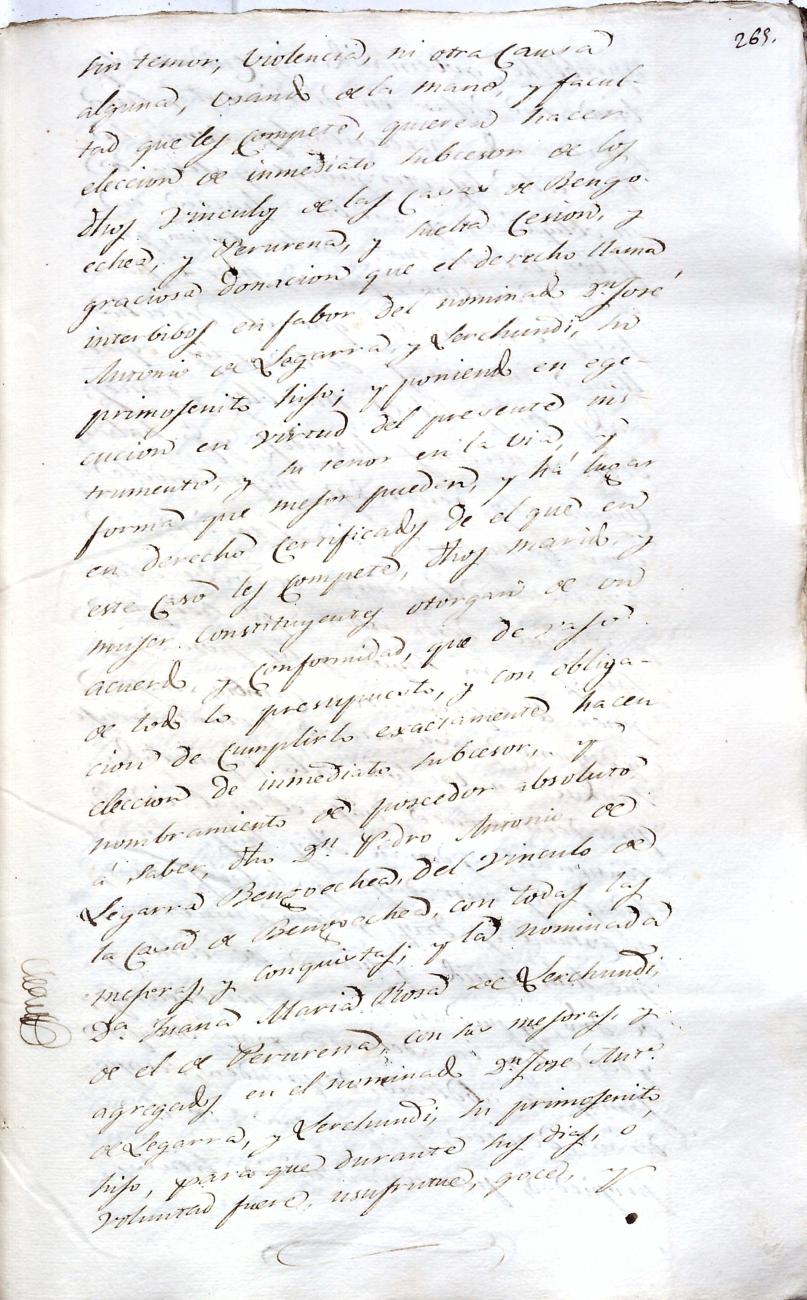 265.
sin temor, violencia, ni otra Causa
alguna, usando de la mano, y facul-
tad que les Compete, quieren hacer
eleccion de inmediato subcesor de los
dhos Vinculos de las Casas de Bengo-
echea, y Perurena, y suelta Cesion, y
graciosa donacion que el derecho llama
interbibos en fabor del nominado Dn José
Antonio de Legarra, y Lerchundi, su
primogenito hijo; y poniendo en ege-
cucion en virtud del presente ins-
trumento, y su tenor en la via, y
forma que mejor pueden, y há lugar
en derecho Certificados de el que en
este Caso les Compete, dhos marido, y
mujer Constituyentes otorgan de un
acuerdo, y Conformidad, que de vajo
de todo lo presupuesto, y con obliga-
cion de Cumplirlo exactamente hacen
eleccion de inmediato subcesor, y
nombramiento de poseedor absoluto
á saber, dho Dn Pedro Antonio de
Legarra Bengoechea, del vinculo de
la Casa de Bengoechea, con todas las
mejoras, y conquistas; y la nominada
Da Juana Maria Rosa de Lerchundi,
de el de Perurena, con sus mejoras, y
agregados en el nominado Dn José Anto
de Legarra, y Lerchundi, su primogenito
hijo, para que durante sus dias, o
voluntad fuere, usufrutue, goce, y